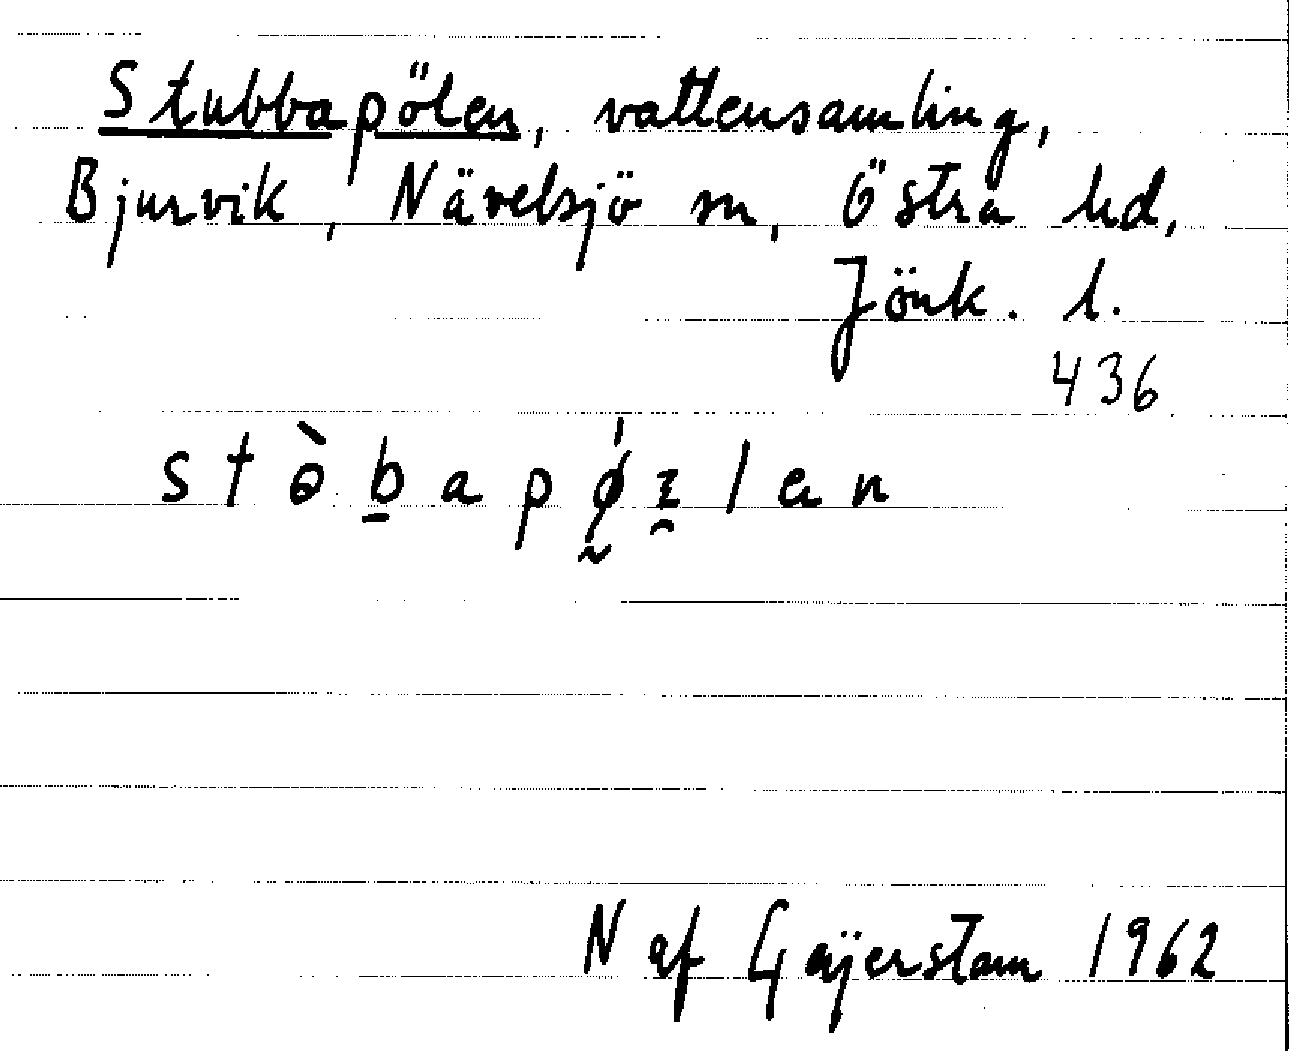 Stubbapölen, vattensamling,
Bjurvik, Nävelsjö sn, Östra hd,
Jönk. l.
436
stòb̲apǿ̰ɪ̯lən
N af Geijerstam 1962